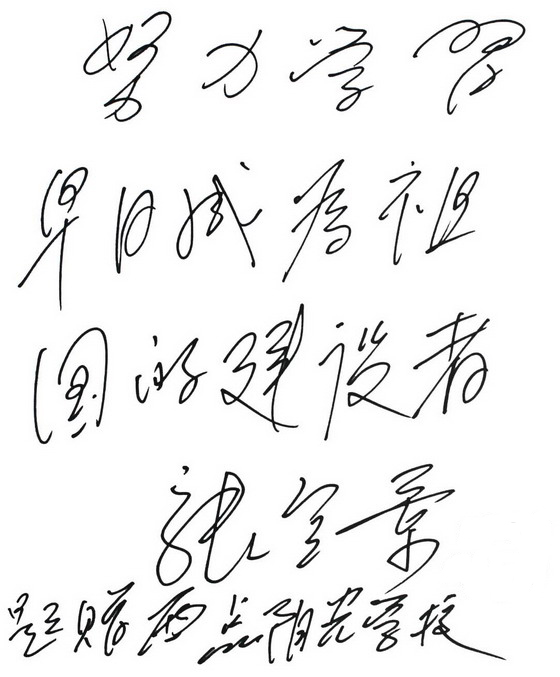 努力学習
早日成为祖
国的建设者
张全景
题赠西点阳光学校